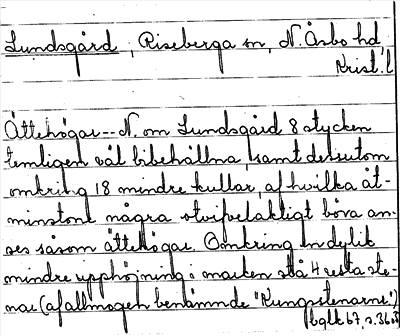 Lundsgård, Riseberga sn, N. Åsbo hd
Krist. l
Ättehögar -- N. om Lundsgård 8 stycken
temligen väl bibehållna, samt dessutom
omkring 18 mindre kullar, af hvilka åt-
minstone några otvifvelaktigt böra an-
ses såsom ättehögar. Omkring en dylik
mindre upphöjning i marken stå 4 resta ste-
nar (af allmogen benämnde "Kungstenarne".)
s. 36